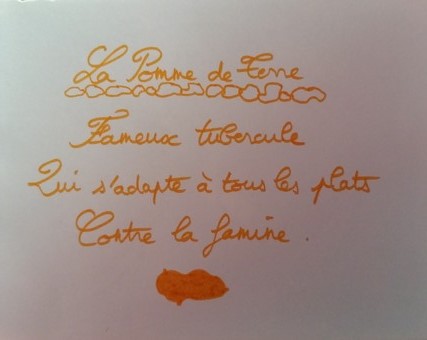 La Pomme de Terre
Fameux tubercule
Qui s'adapte à tous les plats
Contre la famine.